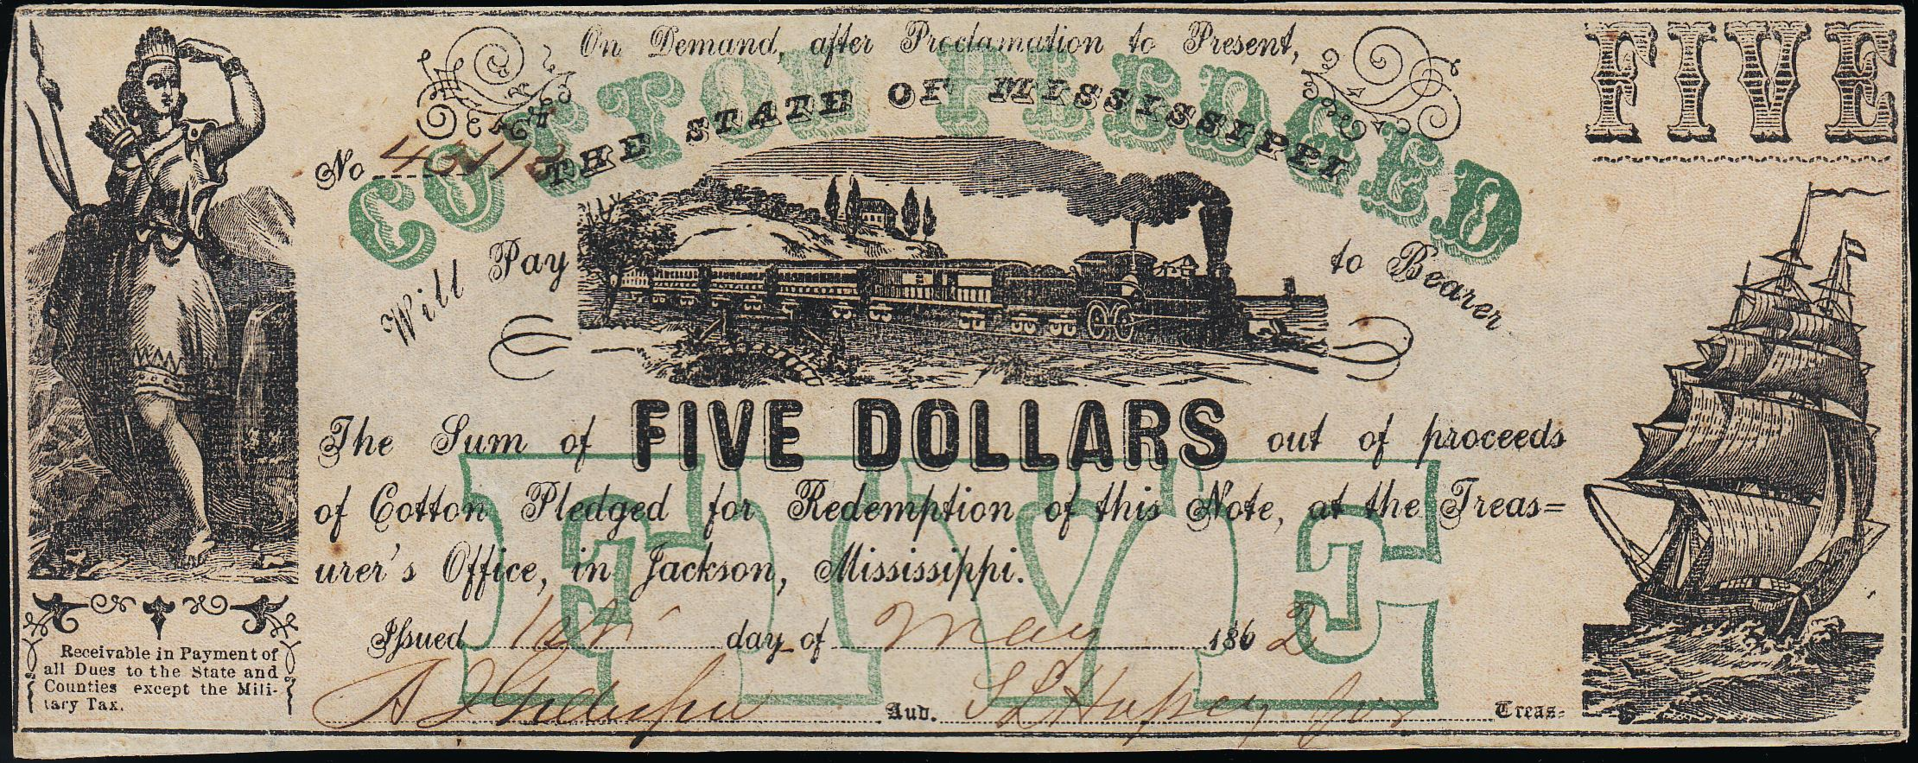 On Demand, after Proclamation to Present,
FIVE
COTTON PLEDGED
THE STATE OF MISSISSIPPI
No
Will Pay to Bearer
The Sum of FIVE DOLLARS out of proceeds
of Cotton Pledged for Redemption of this Note, at the Treas=
urer's Office, in Jackson, Mississippi.
FIVE
Issued day of May 1862
Receivable in Payment of
all Dues to the State and
Counties except the Mili-
tary Tax.
Aud. Treas=